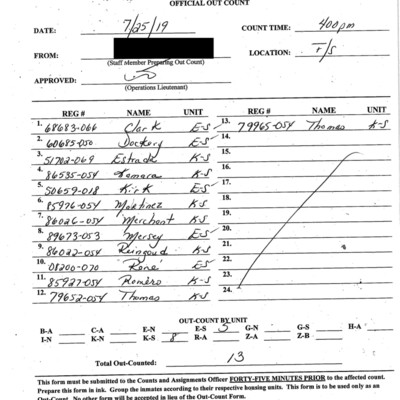 OFFICIAL OUT COUNT
DATE: 7/25/19 COUNT TIME: 400pm
FROM: LOCATION: F/S
(Staff Member Preparing Out Count)
APPROVED:
(Operations Lieutenant)
REG # NAME UNIT REG # NAME UNIT
1. 68683-066 Clark E-S 13. 79965-054 Thomas K-S
2. 60685-050 Dockery E-S 14.
3. 51702-069 Estrada K-S 15.
4. 86535-054 K-S 16.
5. 50659-018 Kirk E-S 17.
6. 85976-054 Martinez K-S 18.
7. 86026-054 Merchant K-S 19.
8. 89673-053 Mersey E-S 20.
9. 86022-054 Reingoud K-S 21.
10. 08200-070 Rone E-S 22.
11. 85927-054 Romero K-S 23.
12. 79652-054 Thomas K-S 24.
OUT-COUNT BY UNIT
B-A C-A E-N E-S 5 G-N G-S H-A
I-N K-N K-S 8 R-A Z-A Z-B
Total Out-Counted: 13
This form must be submitted to the Counts and Assignments Officer FORTY-FIVE MINUTES PRIOR to the affected count.
Prepare this form in ink. Group the inmates according to their respective housing units. This form is to be used only as an
Out-Count. No other form will be accepted in lieu of the Out-Count Form.